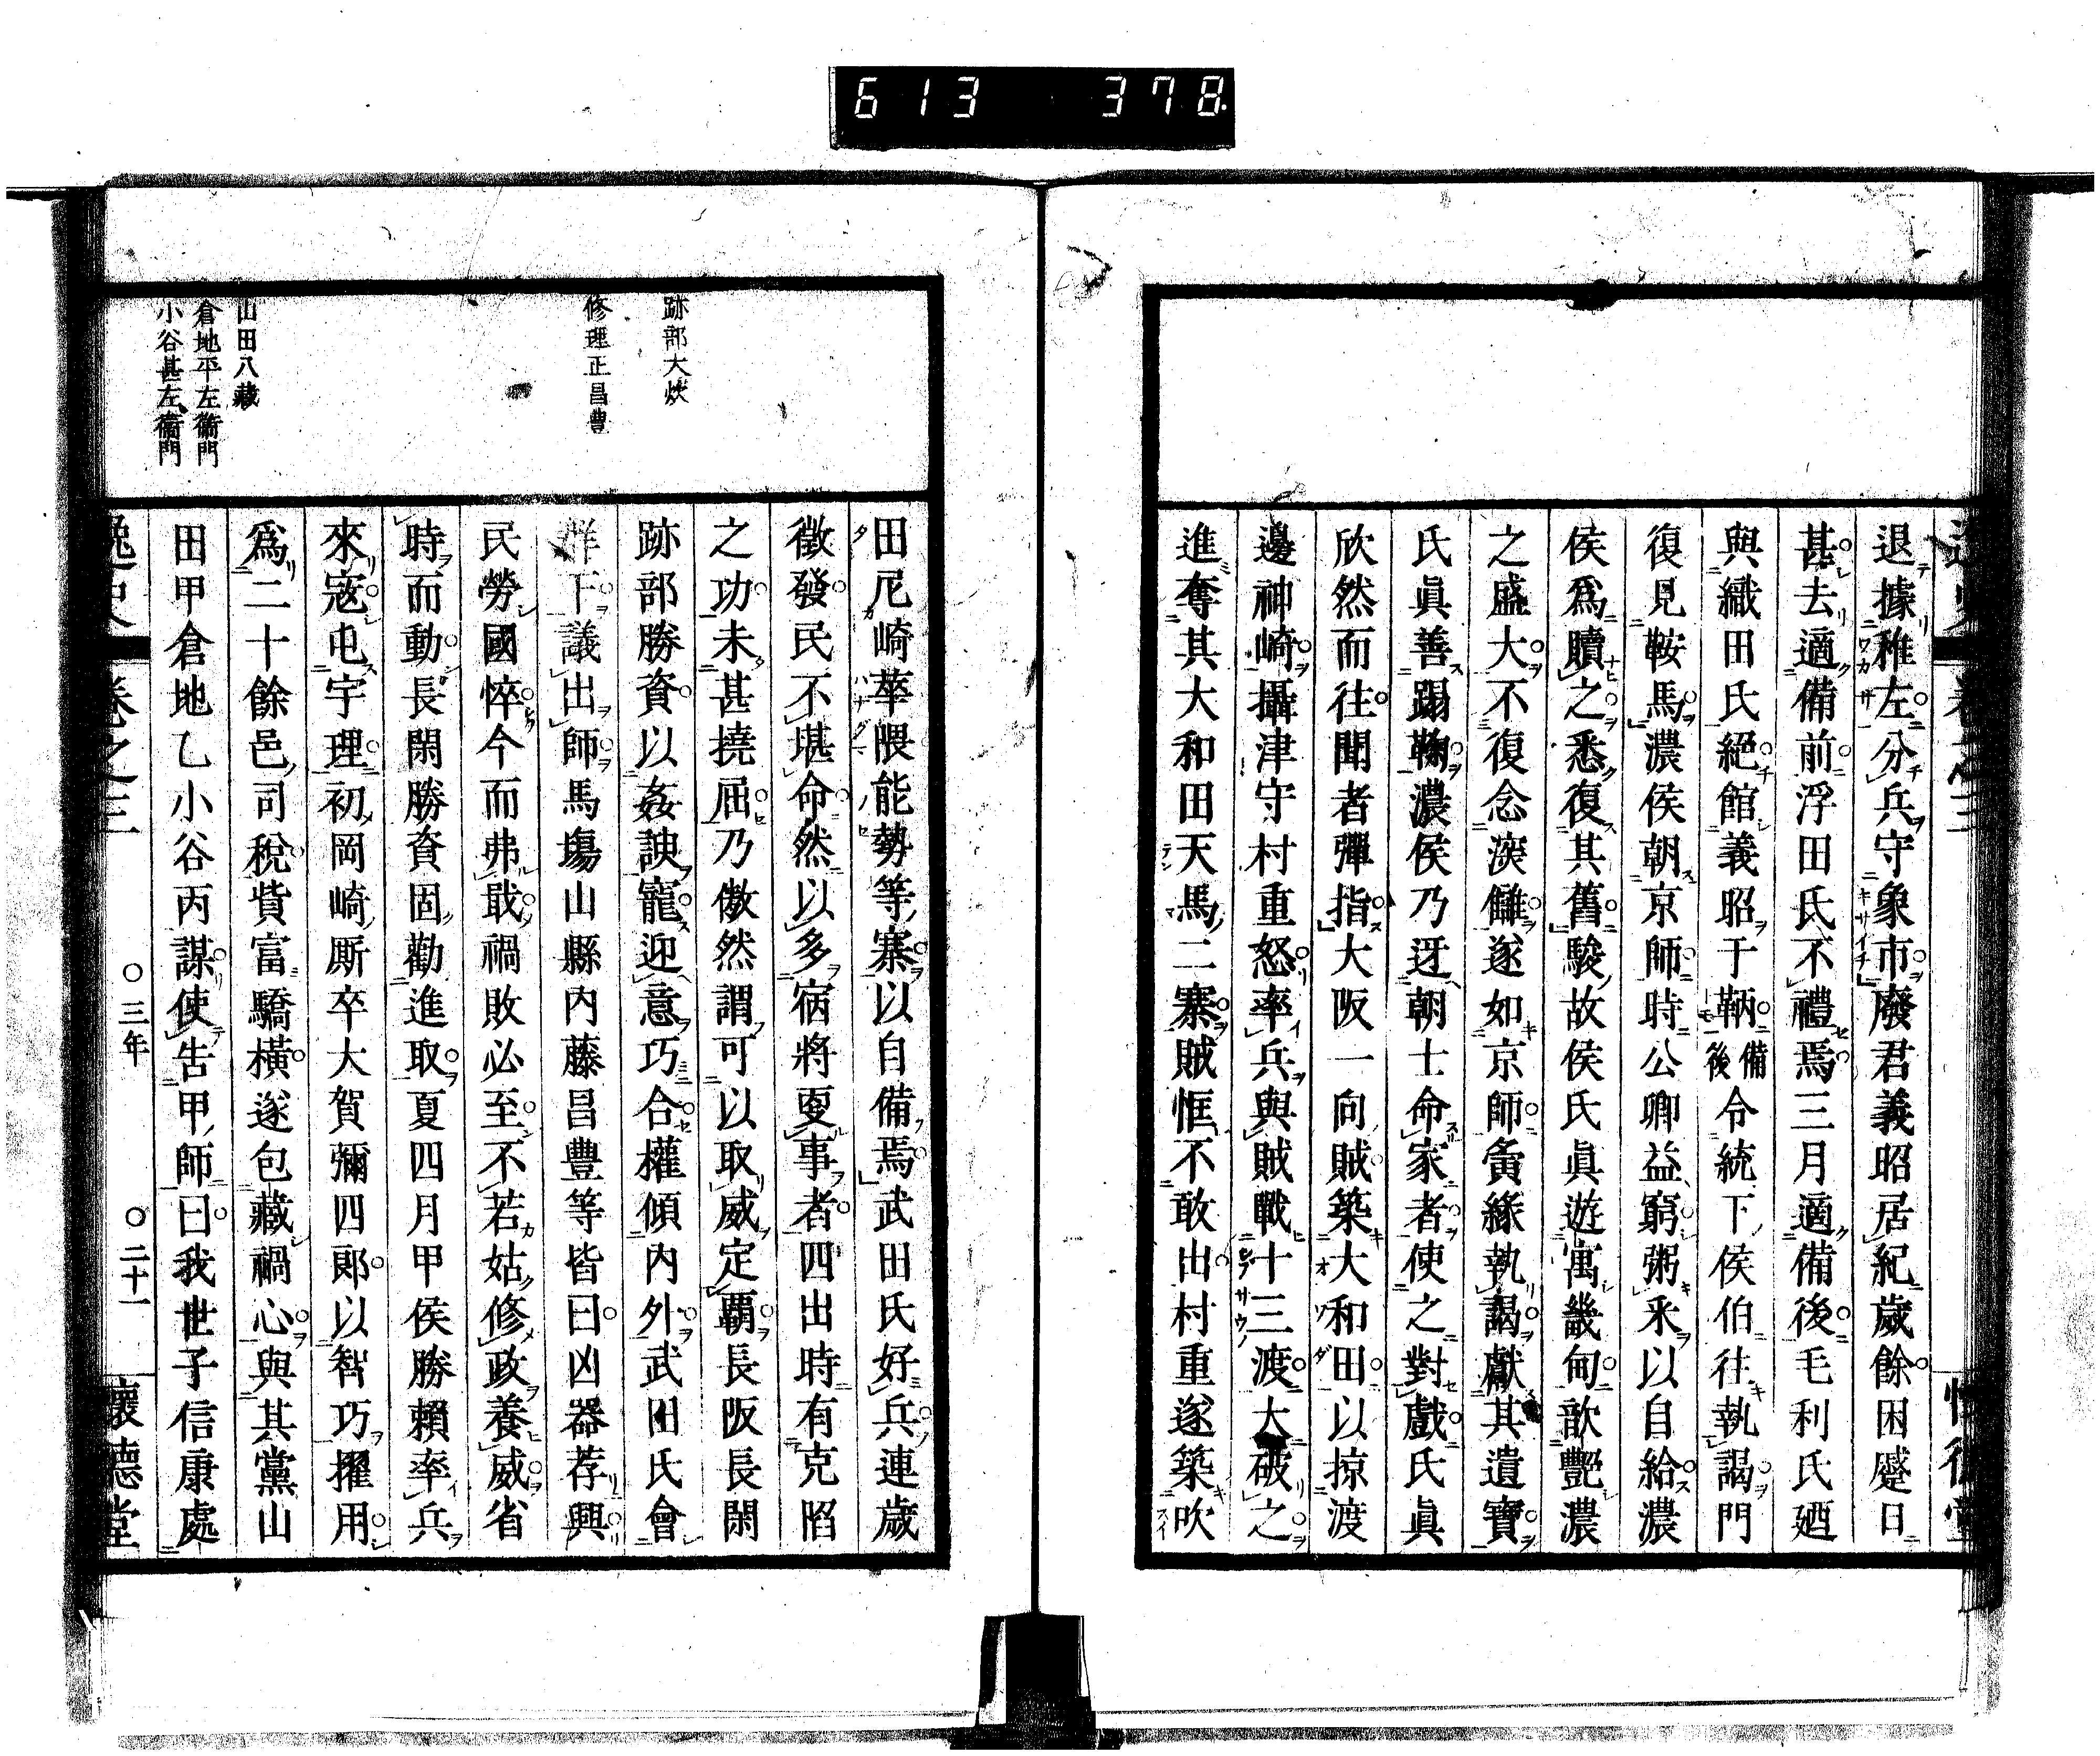 613 378
退據稚左分兵守象市廢君義昭居紀歲餘困蹙日
甚去適備前浮田氏不禮焉三月適備後毛利氏廼
與織田氏絕館義昭于鞆備後令統下侯伯往執謁門
復見鞍馬濃侯朝京師時公卿益窮粥釆以自給濃
侯爲贖之悉復其舊駿故侯氏眞遊寓畿甸歆艷濃
之盛大不復念深讎遂如京師夤緣執謁獻其遺寶
氏眞善蹋鞠濃侯乃迓朝士命家者使之對戲氏眞
欣然而往聞者彈指大阪一向賊築大和田以掠渡
邊神崎攝津守村重怒率兵與賊戰十三渡大破之
進奪其大和田天馬二寨賊恇不敢出村重遂築吹
跡部大炊
修理正昌豊
山田八藏
倉地平左衞門
小谷甚左衞門
田尼崎莘隈能勢等寨以自備焉武田氏好兵連歲
徵發民不堪命然以多病將耎事者四出時有克陷
之功未甚撓屈乃傲然謂可以取威定覇長阪長閑
跡部勝資以姦諛寵迎意巧合權傾內外武田氏會
群下議出師馬塲山縣內藤昌豊等皆曰凶器荐興
民勞國悴今而弗戢禍敗必至不若姑修政養威省
時而動長閑勝資固勸進取夏四月甲侯勝賴率兵
來寇屯宇理初岡崎厮卒大賀彌四郞以智巧擢用
爲二十餘邑司稅貲富驕橫遂包藏禍心與其黨山
田甲倉地乙小谷丙謀使吿甲師曰我世子信康處
逸史 卷之三 ○三年 ○二十一 懷德堂